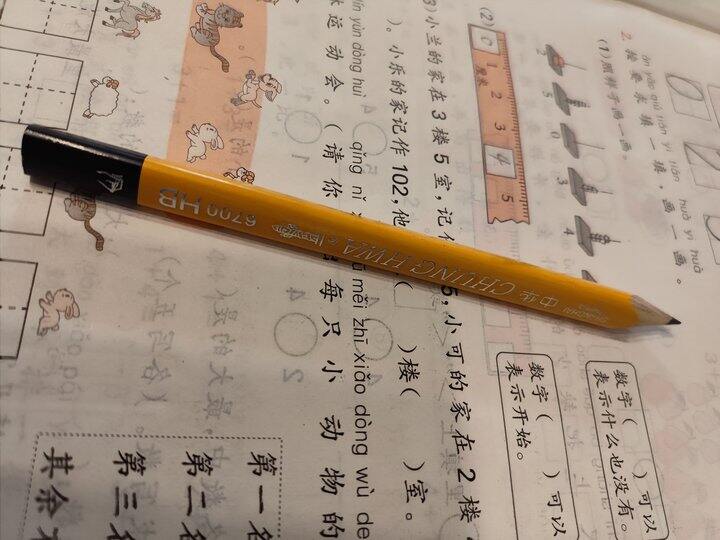 àn yāo qiú tián yì tián huà yì huà
2. 按要求填一填,画一画。
(1) 照样子画一画。
5 0 3 4
(2) 0 1 2 3 4 5
厘米
数字( )可以
表示什么也没有。
数字( )可以
表示开始。
3) 小兰的家在3楼5室,记 5,小可的家在2楼
)。小乐的家记作102,他 ( )楼( )室。
yùn dòng huì qǐng nǐ měi zhī xiǎo dòng wù de
运动会。(请你 每只小动物的
第一名
第二名
第三名
其余
6700 HB CHUNG HWA 中华